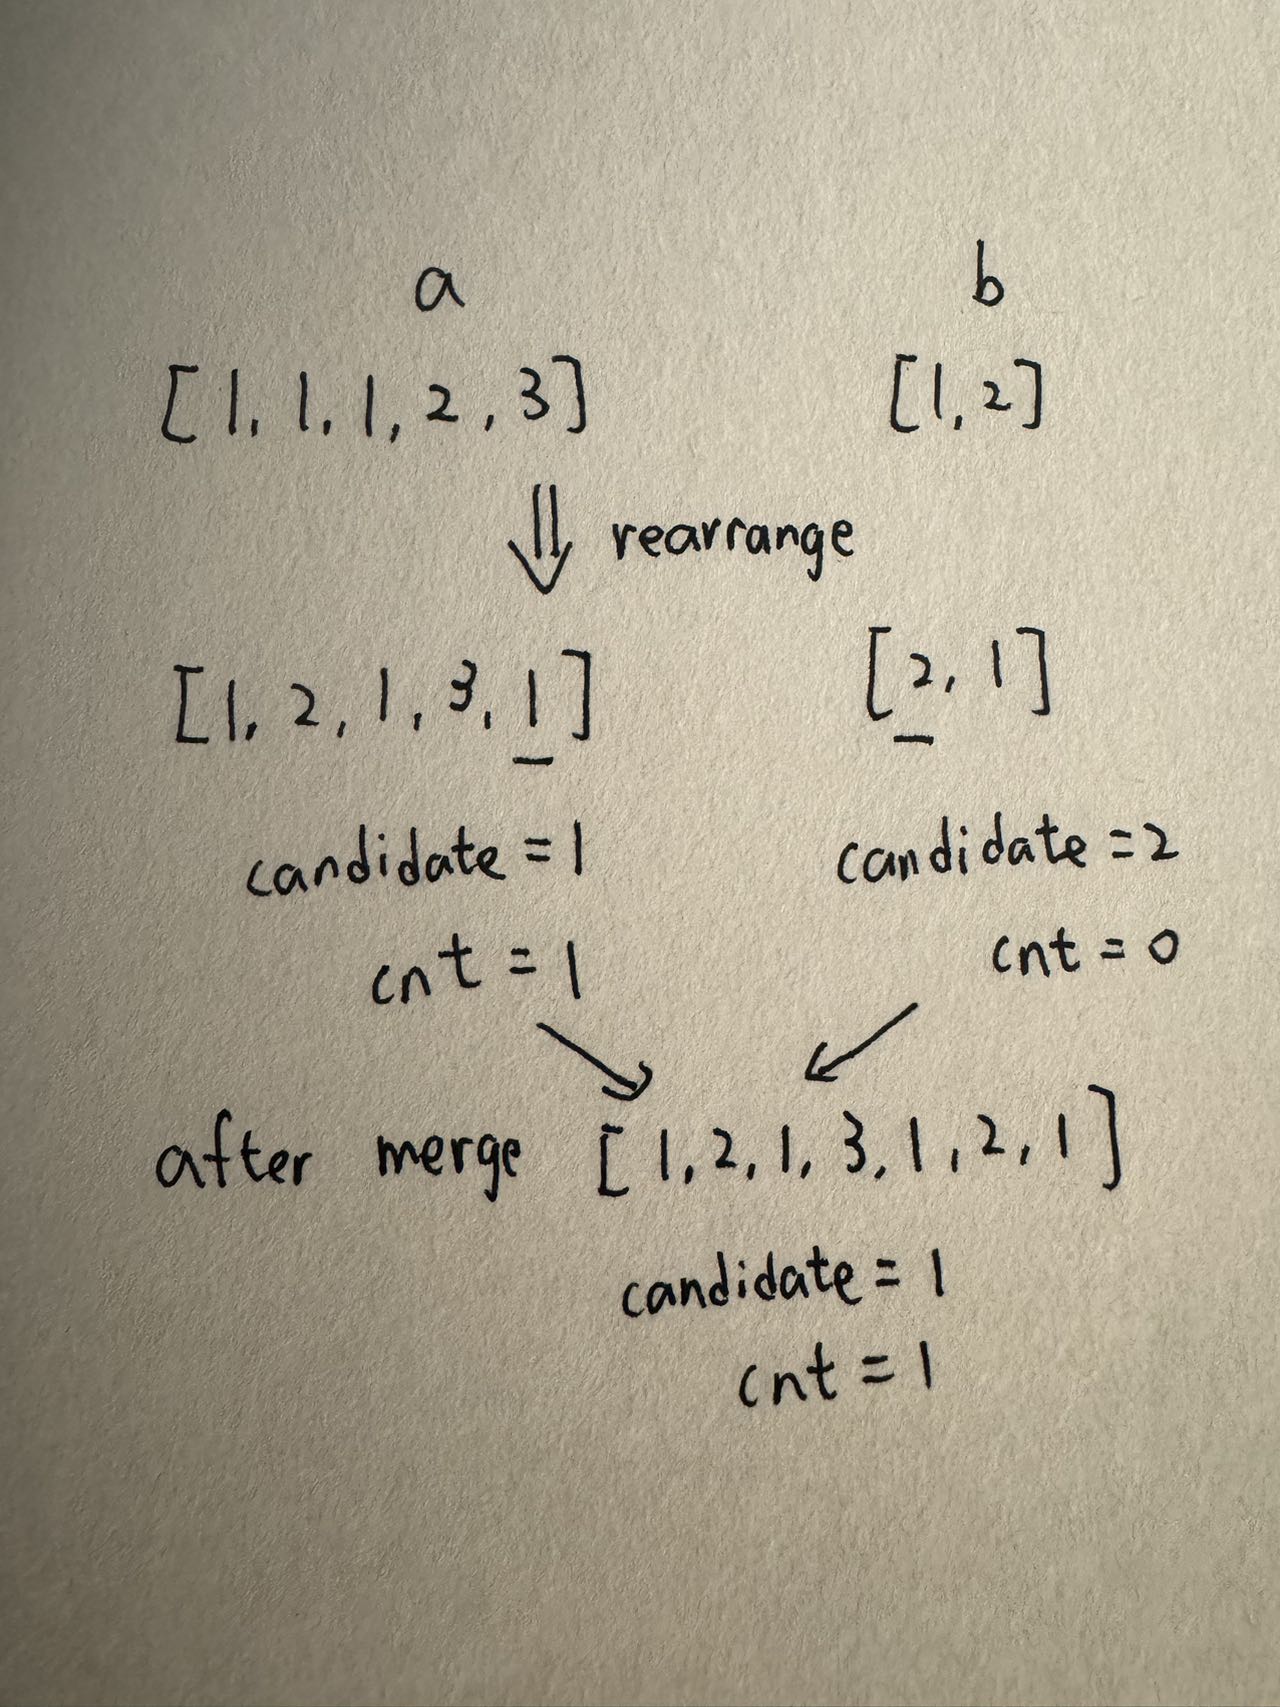 a b
[1, 1, 1, 2, 3] [1, 2]
rearrange
[1, 2, 1, 3, 1] [2, 1]
candidate = 1 candidate = 2
cnt = 1 cnt = 0
after merge [1, 2, 1, 3, 1, 2, 1]
candidate = 1
cnt = 1